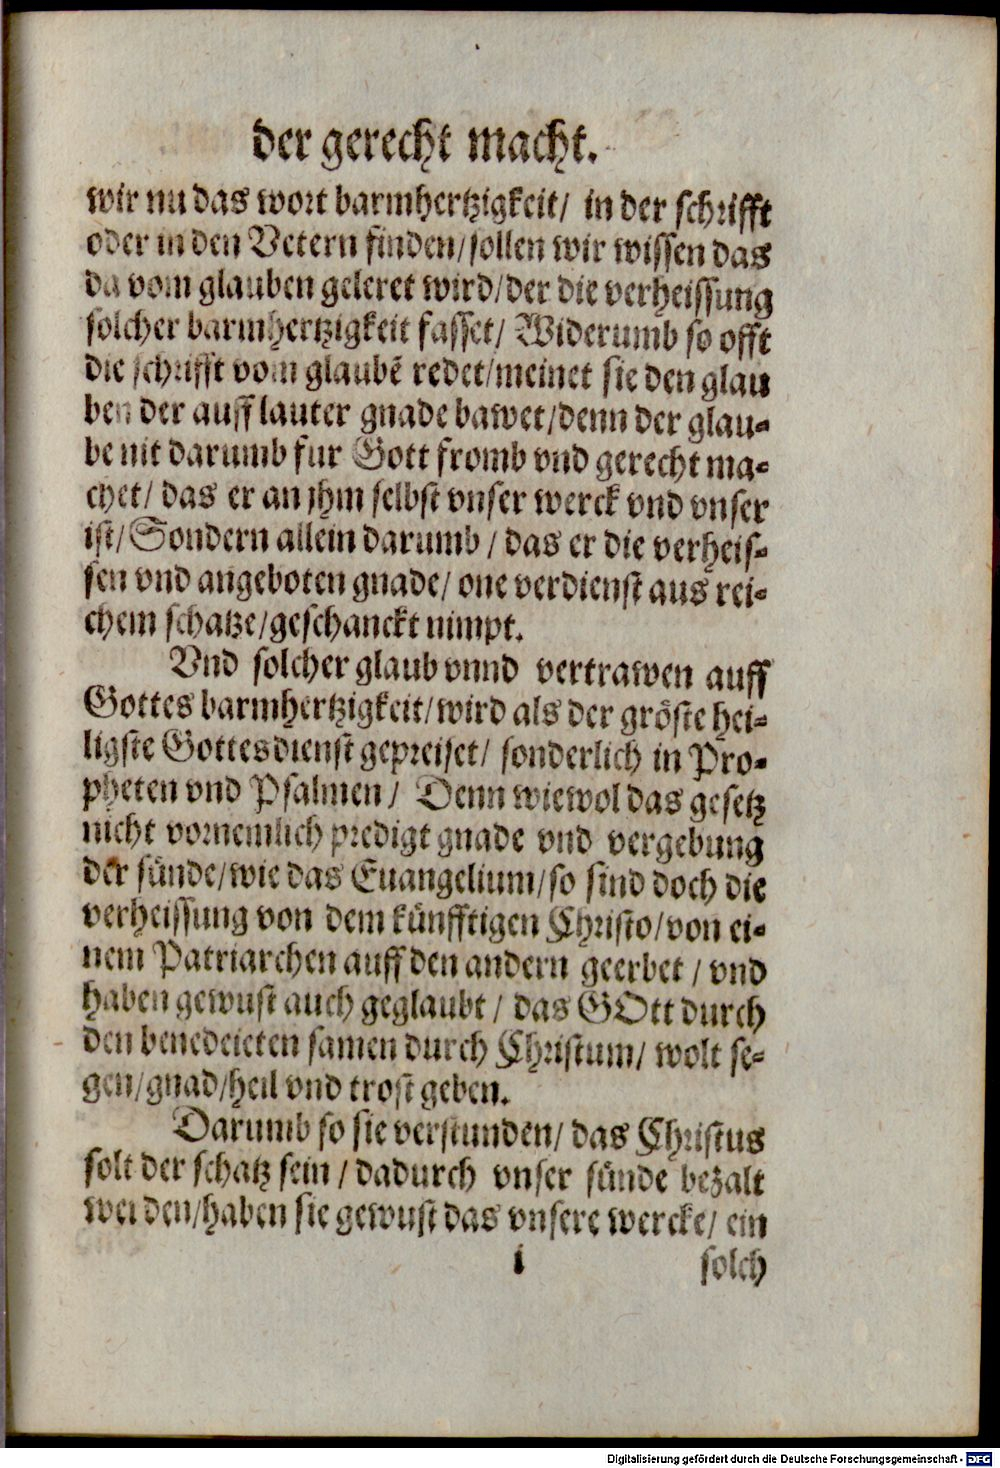 der gerecht macht.
wir nu das wort barmhertzigkeit/ in der schrifft
oder in den Vetern finden/sollen wir wissen das
da vom glauben geleret wird/der die verheissung
solcher barmhertzigkeit fasset/ Widerumb so offt
die schrifft vom glaubẽ redet/meinet sie den glau
ben der auff lauter gnade bawet/denn der glau-
be nit darumb fur Gott fromb vnd gerecht ma-
chet/ das er an jhm selbst vnser werck vnd vnser
ist/Sondern allein darumb / das er die verheis-
sen vnd angeboten gnade/ one verdienst aus rei-
chem schatze/geschanckt nimpt.
Vnd solcher glaub vnnd vertrawen auff
Gottes barmhertzigkeit/wird als der gröste hei-
ligste Gottesdienst gepreiset/ sonderlich in Pro-
pheten vnd Psalmen / Denn wiewol das gesetz
nicht vornemlich predigt gnade vnd vergebung
der sünde/wie das Euangelium/so sind doch die
verheissung von dem künfftigen Christo/von ei-
nem Patriarchen auff den andern geerbet / vnd
haben gewust auch geglaubt / das GOtt durch
den benedeieten samen durch Christum/ wolt se-
gen/gnad/heil vnd trost geben.
Darumb so sie verstunden/ das Christus
solt der schatz sein / dadurch vnser sünde bezalt
werden/haben sie gewust das vnsere wercke/ ein
i solch
Digitalisierung gefördert durch die Deutsche Forschungsgemeinschaft - DFG